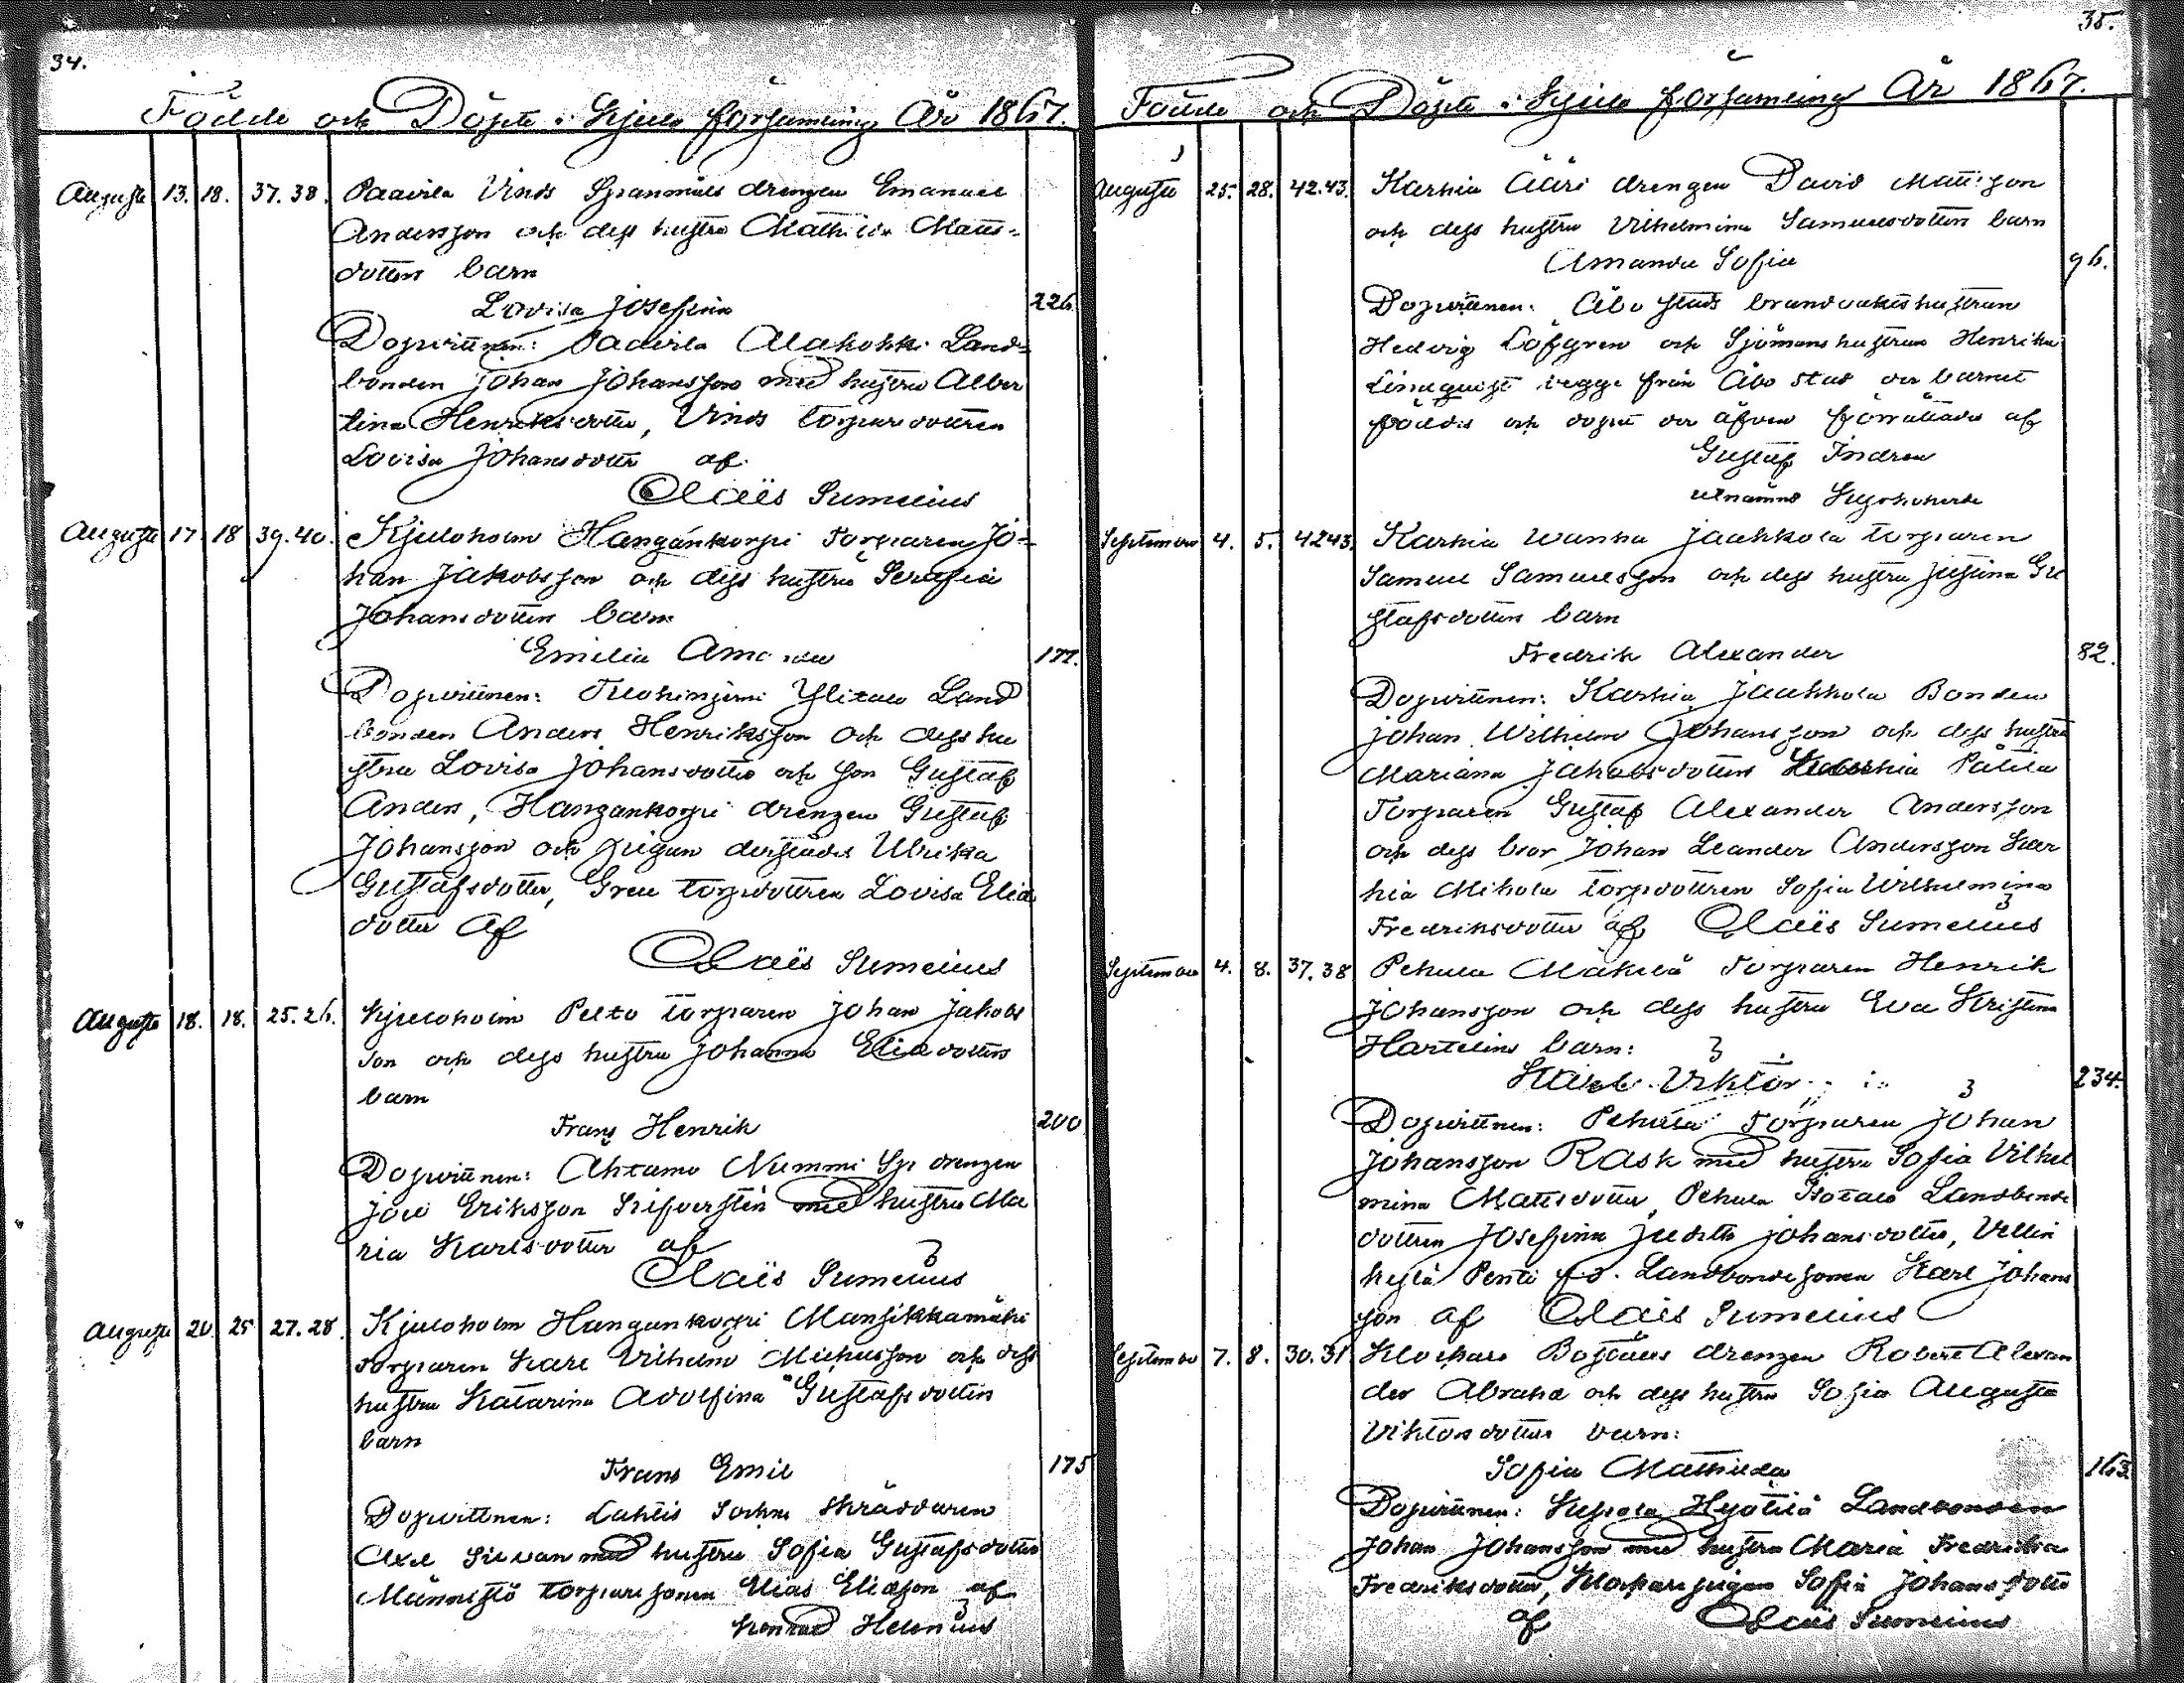 34.
Födde och Döpte i Kjulo församling År 1867.
Augusti 13. 18. 37. 38. Paavila Vinds Spanmåls drengen Emanuel
Andersson och dess hustru Mathilda Matts-
dotters barn
Lovisa Josefina 226.
Dopvittnen: Paavila Alakokki Land-
bonden Johan Johansson med hustru Alber
tina Henriksdotter, Vinds torpare dottren
Lovisa Johansdotter af
Claës Sumelius
Augusti 17 18 39. 40. Kjuloholm Hangankorpi Torparen Jo-
han Jakobsson och dess hustru Serafia
Johansdotters barn
Emilia Amanda 177.
Dopvittnen: Ylitalo Land
bonden Anders Henriksson och dess hu
stru Lovisa Johansdotter och son Gustaf
Anders, Hangankorpi drengen Gustaf
Johansson och pigan derstädes Ulrika
Gustafsdotter, torpdottren Lovisa Elia
dotter af
Claës Sumelius
Augusti 18. 18. 25. 26. Kjuloholm Pelto torparen Johan Jakobs
son och dess hustru Johanna Eliadotters
barn
Frans Henrik 200
Dopvittnen: Ahtamo Nummi Sp drengen
Joel Eriksson Silfversten med hustru Ma
ria Karlsdotter af
Claës Sumelius
Augusti 20. 25 27. 28. Kjuloholm Hangankorpi Mansikkamäki
torparen Karl Vilhelm Michelsson och dess
hustru Katarina Adolfina Gustafsdotters
barn
Frans Emil 175
Dopvittnen: Lahtis skräddaren
Axel Silvan med hustru Sofia Gustafsdotter
Männistö torpare sonen Elias Eliasson af
Konrad Helenius
35.
Födde och Döpte i Kjulo församling År 1867.
Augusti 25. 28. 42.43. Karhia Ääri drengen David Mattsson
och dess hustru Vilhelmina Samuelsdotters barn
Amanda Sofia 96.
Dopvittnen: Åbo stads brandvaktshustrun
Hedvig Löfgren och Sjömanshustrun Henrika
Lindquist begge från Åbo stad der barnet
föddes och dopet der äfven förrättades af
Gustaf Indren
utnämnd Kyrkoherde
September 4. 5. 42 43. Karhia Wanha Jaakkola torparen
Samuel Samuelsson och dess hustru Justina Gu
stafsdotters barn
Fredrik Alexander 82.
Dopvittnen: Karhia Jaakkola Bonden
Johan Wilhelm Johansson och dess hustru
Mariana Jakobsdotter Karhia Pätilä
Torparen Gustaf Alexander Andersson
och dess bror Johan Leander Andersson Kar
hia Mikola torpdottren Sofia Wilhelmina
Fredriksdotter af Claës Sumelius
September 4. 8. 37. 38 Pehula Mäkilä Torparen Henrik
Johansson och dess hustru Eva Kristina
Hartelins barn:
Karl Viktor 234.
Dopvittnen: Pehula Torparen Johan
Johansson Rask med hustru Sofia Vilhel
mina Mattsdotter, Pehula Isotalo Landbonde
dottren Josefina Judith Johansdotter, Vellin
kylä Penti f.d. Landbondesonen Karl Johans
son af Claës Sumelius
September 7. 8. 30. 31 Klockars Boställes drengen Robert Alexan
der Abraha och dess hustru Sofia Augusta
Viktorsdotters barn:
Sofia Mathilda 163.
Dopvittnen: Kepola Hyötilä Landbonden
Johan Johansson med hustru Maria Fredrika
Fredriksdotter, Klockarspigan Sofia Johansdotter
af Claës Sumelius